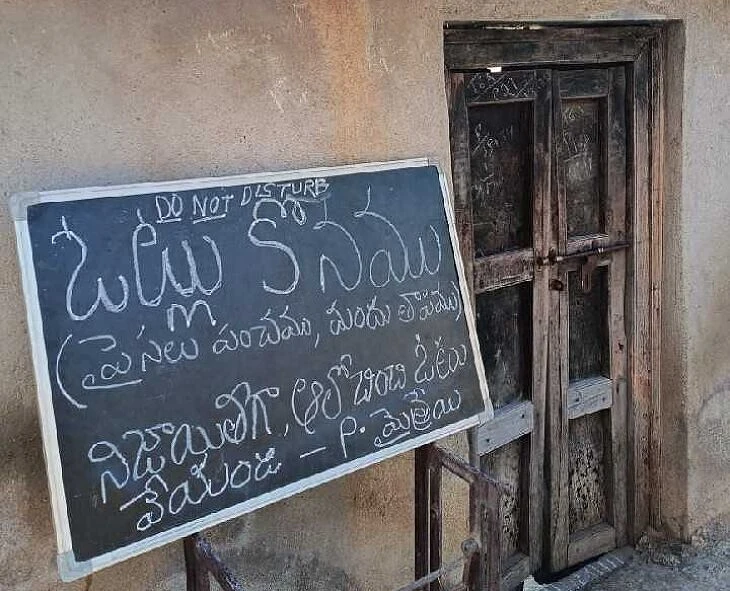 DO NOT DISTURB
ఓట్లు కొనము
(పైసలు పంచము, మందు తాపము)
నిజాయితీగా, ఆలోచించి ఓటు
వేయండి - P. మైత్రేయి